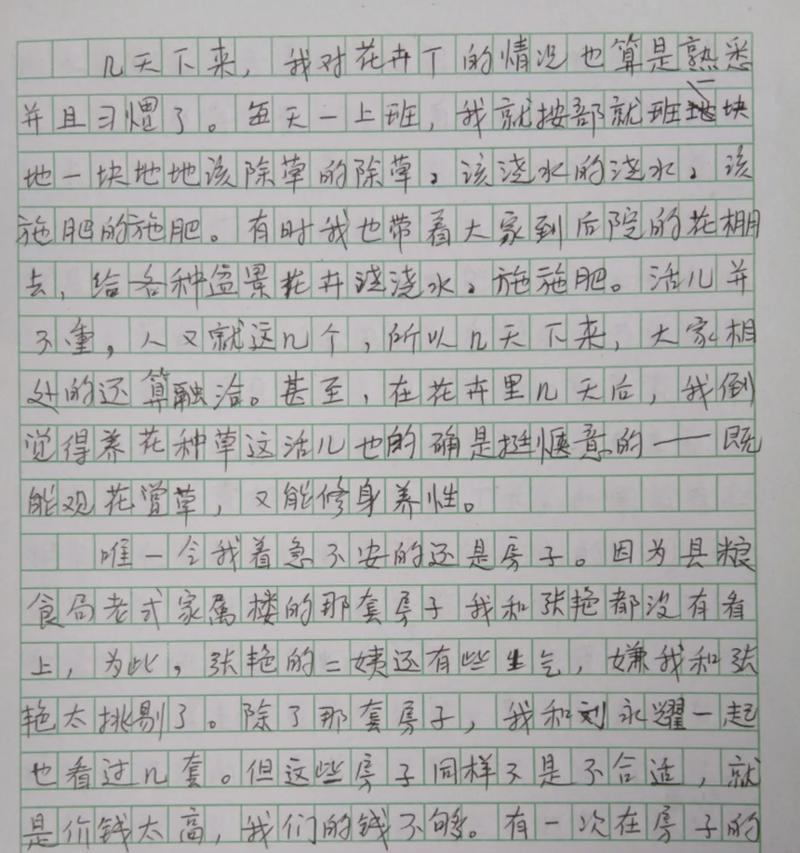 几天下来，我对花卉丁的情况也算是熟悉
并且习惯了。每天一上班，我就按部就班一块
地一块地地该除草的除草，该浇水的浇水，该
施肥的施肥。有时我也带着大家到后院的花棚
去，给各种盆景花卉浇浇水，施施肥。活儿并
不重，人又就这几个，所以几天下来，大家相
处的还算融洽。甚至，在花卉里几天后，我倒
觉得养花种草这活儿也的确是挺惬意的——既
能观花赏草，又能修身养性。
唯一令我着急不安的还是房子。因为县粮
食局老式家属楼的那套房子我和张艳都没有看
上，为此，张艳的二姨还有些生气，嫌我和张
艳太挑剔了。除了那套房子，我和刘永耀一起
也看过几套。但这些房子同样不是不合适，就
是价钱太高，我们的钱不够。有一次在房子的